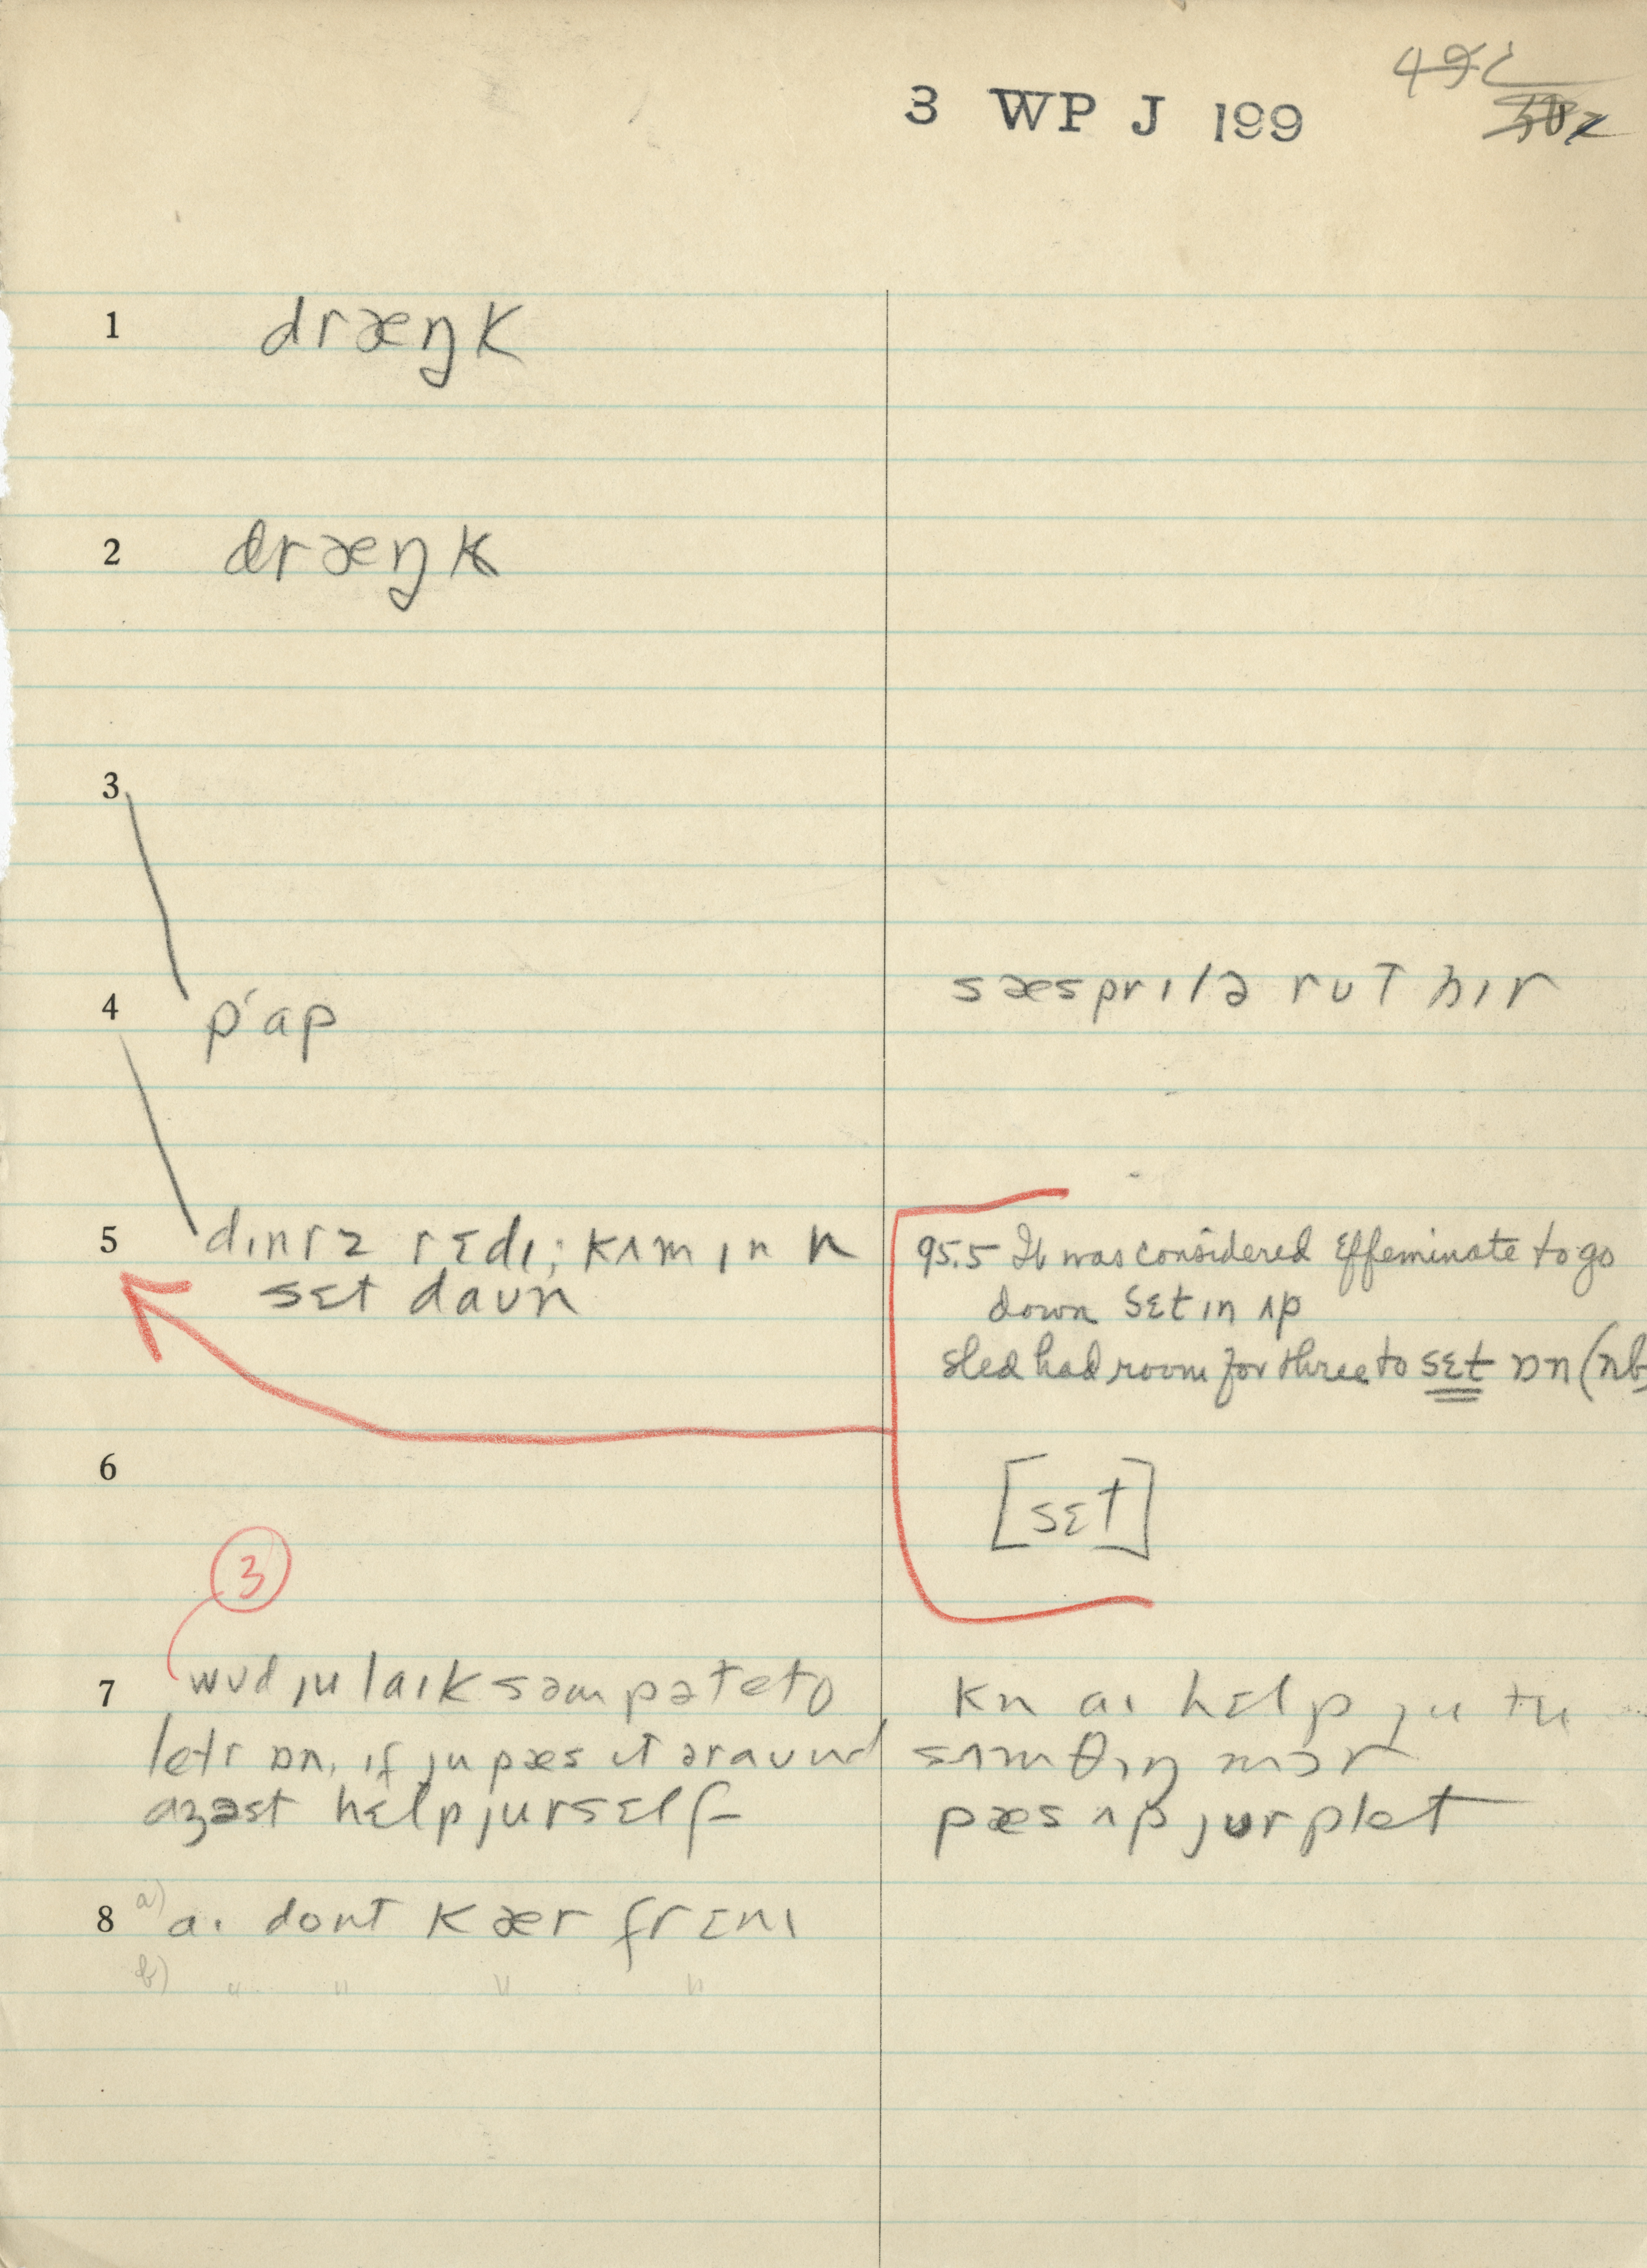 3 WP J 199
1 dræŋk
2 dræŋk
3
sæsprɪlə rut hɪr
4 p'ap
5 dɪnrz rɛdɪ; kʌm ɪn n
sɛt daun
95.5 It was considered effeminate to go
down sɛt ɪn ʌp
sled had room for three to sɛt ɒn (nb
6
[sɛt]
3
7 wud ju laɪk səm pəteto
letr ɒn, ɪf ju pæs ɪt əraund
aʒəst hɛlp jurself
kn aɪ hɛlp ju tu
sʌmθɪŋ mɔr
pæs ʌp jur plet
8 a) aɪ dont kær fr ɛnɪ
b) " " " "